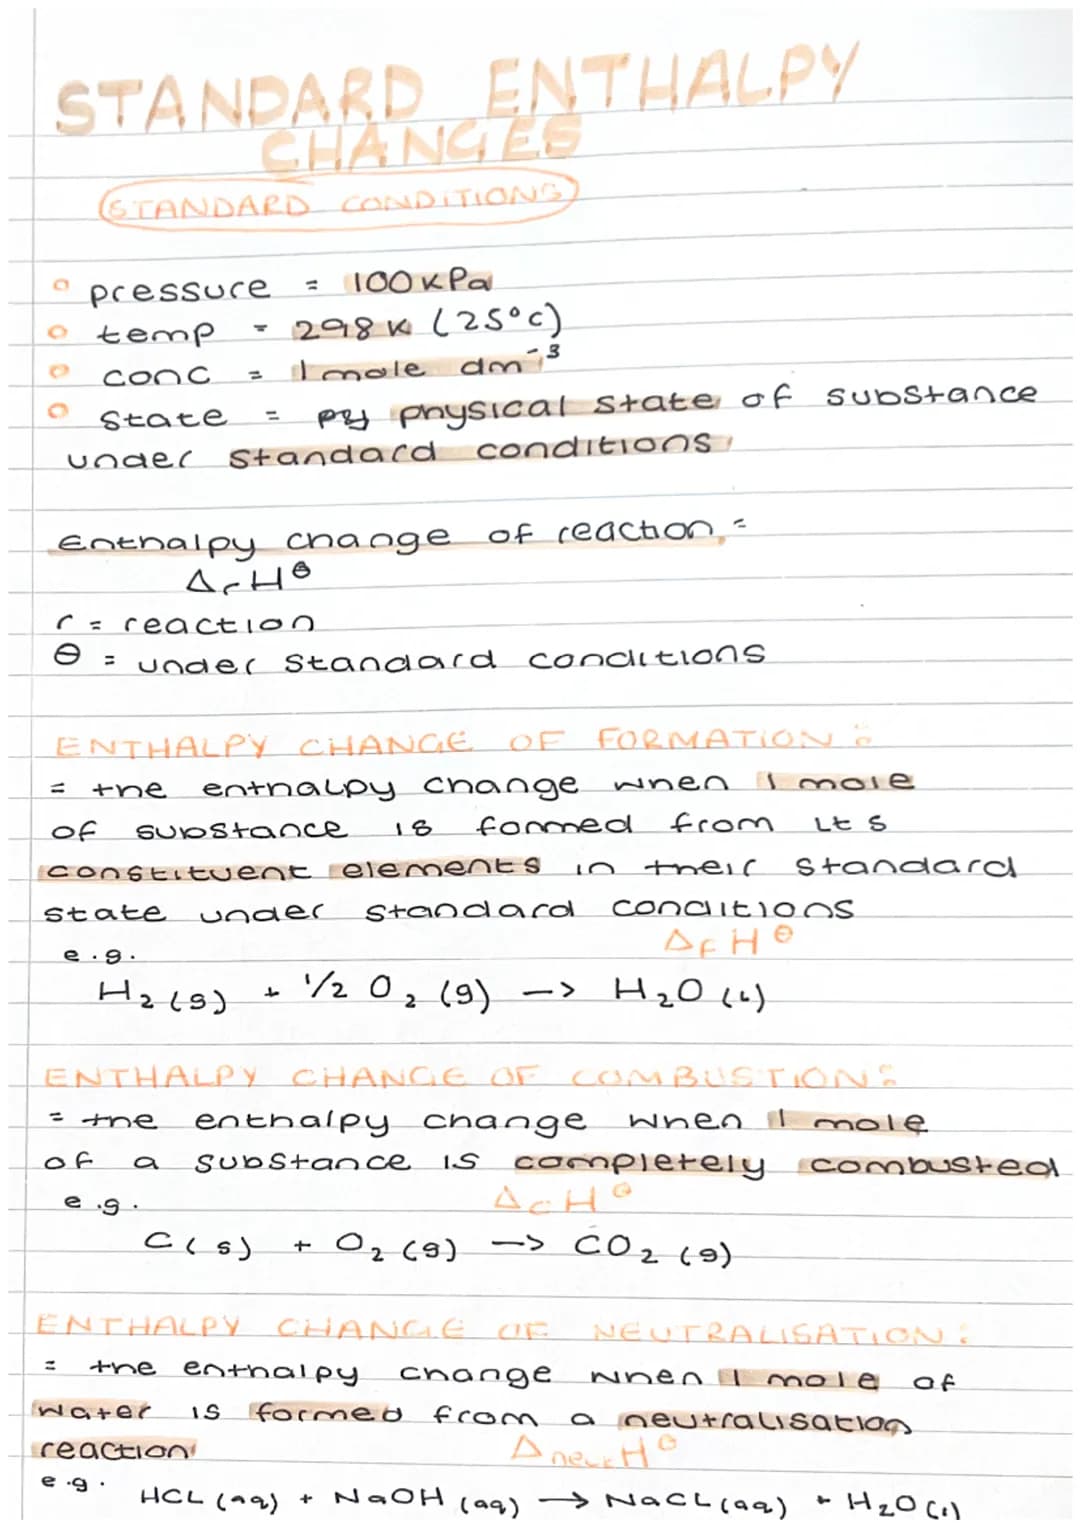 STANDARD ENTHALPY
CHANGES
STANDARD CONDITIONS
pressure = 100 kPa
temp = 298 K (25°C)
conc = 1 mole dm⁻³
State = physical state of substance
under standard conditions
Enthalpy change of reaction =
ΔrH⊖
r = reaction
⊖ = under standard conditions
ENTHALPY CHANGE OF FORMATION:
= the enthalpy change when 1 mole
of substance is formed from its
constituent elements in their standard
state under standard conditions
ΔfH⊖
e.g.
H₂(g) + 1/2 O₂ (g) -> H₂O (l)
ENTHALPY CHANGE OF COMBUSTION:
= the enthalpy change when 1 mole
of a substance is completely combusted
e.g. ΔcH⊖
C(s) + O₂ (g) -> CO₂ (g)
ENTHALPY CHANGE OF NEUTRALISATION:
= the enthalpy change when 1 mole of
water is formed from a neutralisation
reaction ΔneutH⊖
e.g. HCL (aq) + NaOH (aq) → NaCL (aq) + H₂O (l)